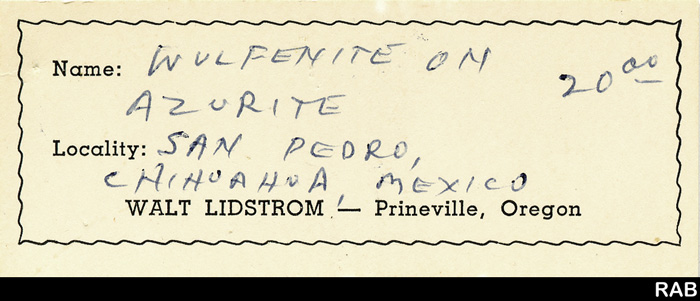 Name: WULFENITE ON 20.00
AZURITE
Locality: SAN PEDRO,
CHIHUAHUA, MEXICO
WALT LIDSTROM — Prineville, Oregon
RAB